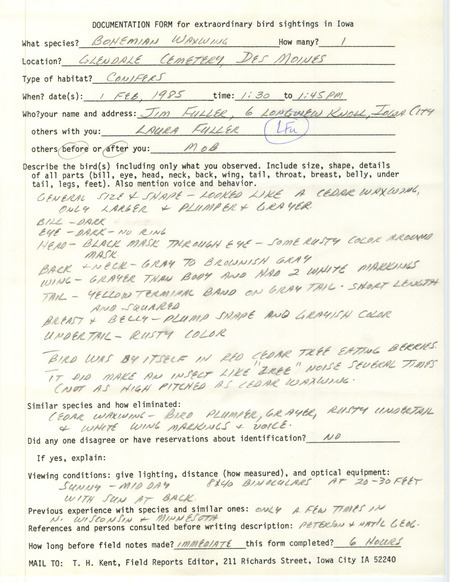 DOCUMENTATION FORM for extraordinary bird sightings in Iowa
What species? BOHEMIAN WAXWING How many? 1
Location? GLENDALE CEMETERY, DES MOINES
Type of habitat? CONIFERS
When? date(s): 1 FEB, 1985 time: 1:30 to 1:45 PM
Who? your name and address: JIM FULLER, 6 LONGVIEW KNOLL, IOWA CITY
others with you: LAURA FULLER LFu
others before or after you: MOB
Describe the bird(s) including only what you observed. Include size, shape, details
of all parts (bill, eye, head, neck, back, wing, tail, throat, breast, belly, under
tail, legs, feet). Also mention voice and behavior.
GENERAL SIZE & SHAPE - LOOKED LIKE A CEDAR WAXWING,
ONLY LARGER & PLUMPER & GRAYER
BILL - DARK
EYE - DARK - NO RING
HEAD - BLACK MASK THROUGH EYE - SOME RUSTY COLOR AROUND
MASK
BACK & NECK - GRAY TO BROWNISH GRAY
WING - GRAYER THAN BODY AND HAD 2 WHITE MARKINGS
TAIL - YELLOW TERMINAL BAND ON GRAY TAIL. SHORT LENGTH
AND SQUARED
BREAST & BELLY - PLUMP SHAPE AND GRAYISH COLOR
UNDERTAIL - RUSTY COLOR
BIRD WAS BY ITSELF IN RED CEDAR TREE EATING BERRIES.
IT DID MAKE AN INSECT LIKE "ZREE" NOISE SEVERAL TIMES
(NOT AS HIGH PITCHED AS CEDAR WAXWING.
Similar species and how eliminated:
CEDAR WAXWING - BIRD PLUMPER, GRAYER, RUSTY UNDERTAIL
& WHITE WING MARKINGS & VOICE.
Did any one disagree or have reservations about identification? NO
If yes, explain:
Viewing conditions: give lighting, distance (how measured), and optical equipment:
SUNNY - MID DAY 8X40 BINOCULARS AT 20-30 FEET
WITH SUN AT BACK
Previous experience with species and similar ones: ONLY A FEW TIMES IN
N. WISCONSIN & MINNESOTA
References and persons consulted before writing description: PETERSON & NAT'L GEOG.
How long before field notes made? IMMEDIATE this form completed? 6 HOURS
MAIL TO: T. H. Kent, Field Reports Editor, 211 Richards Street, Iowa City IA 52240